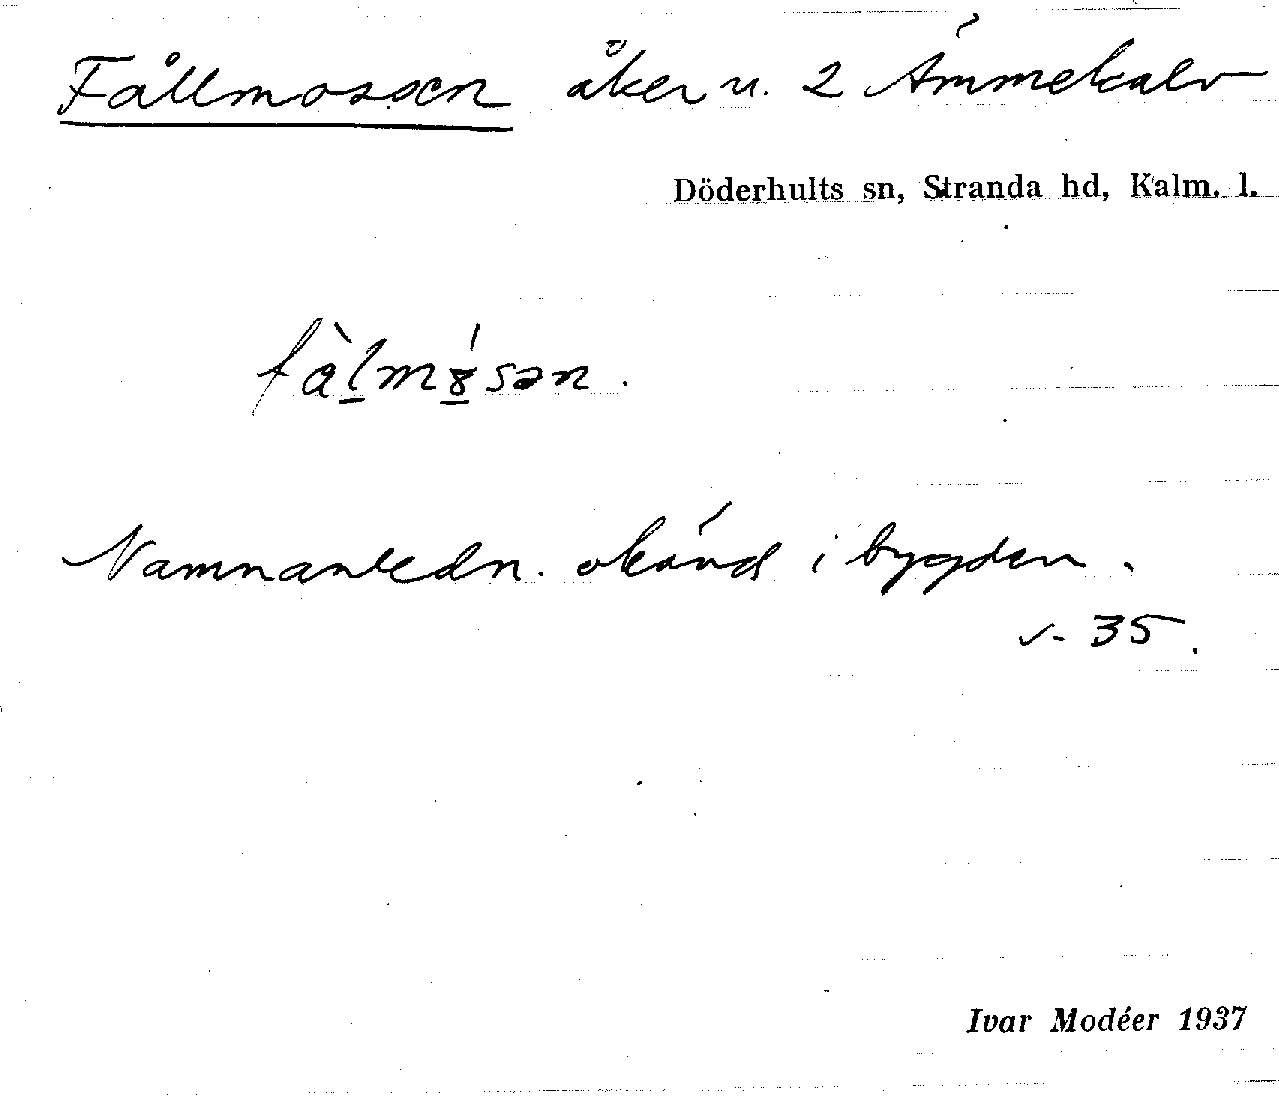 Fållmossen åker u. 2 Ämmekalv
Döderhults sn, Stranda hd, Kalm. l.
fàlmósən.
Namnanledn. okänd i bygden.
v- 35.
Ivar Modéer 1937